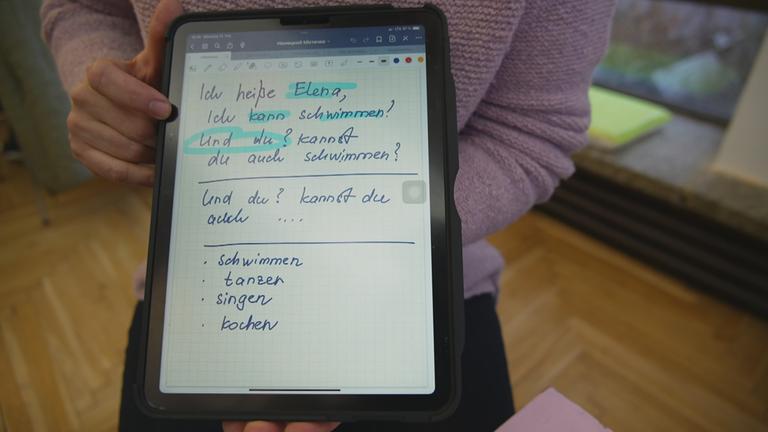 Ich heiße Elena,
Ich kann schwimmen!
Und du? Kannst
du auch schwimmen?
Und du? Kannst du
auch ....
· schwimmen
· tanzen
· singen
· kochen